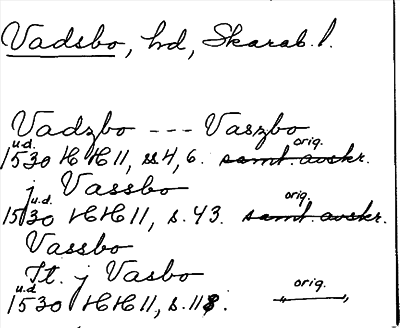 Vadsbo, hd, Skarab. l.
Vadzbo --- Vaszbo
u.d. orig.
1530 HH 11, ss 4, 6. samt. avskr.
j Vassbo
u.d. orig.
1530 HH 11, s. 43. samt. avskr.
Vassbo
It. j Vasbo
u.d. orig.
1530 HH 11, s. 118. —"—